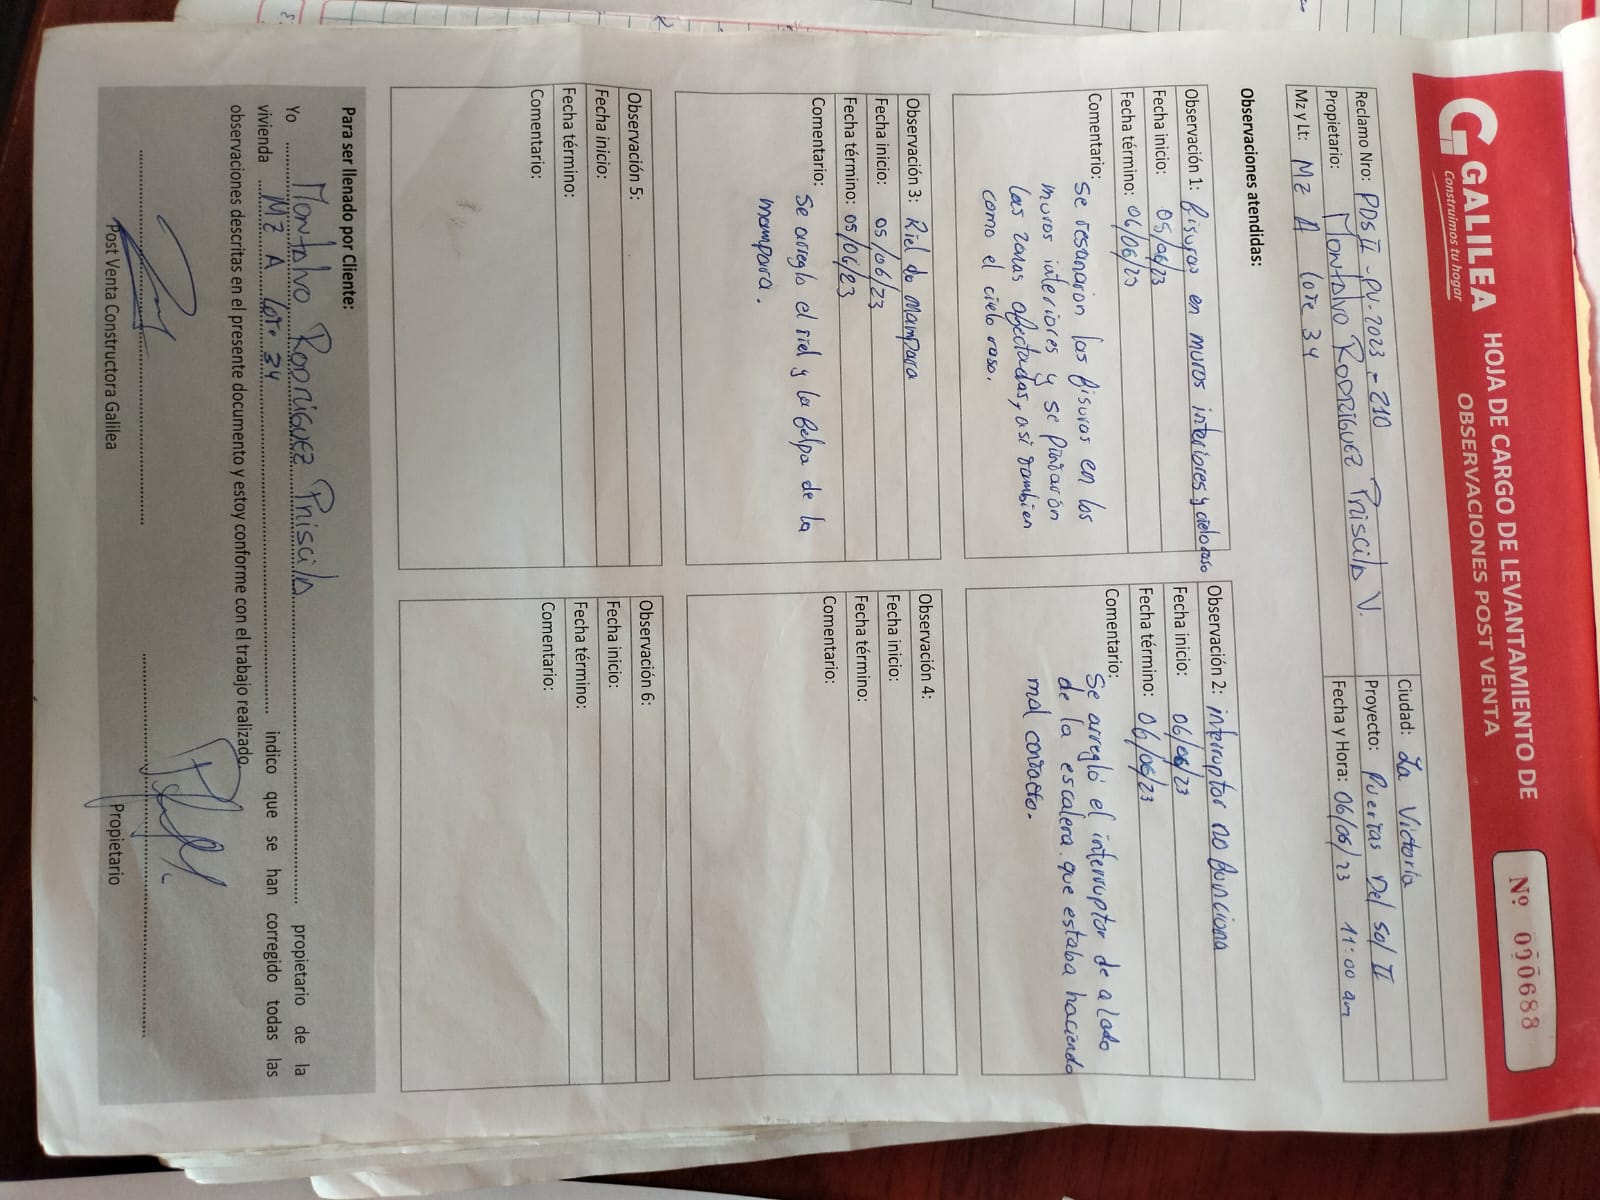 GALILEA
Construimos tu hogar
HOJA DE CARGO DE LEVANTAMIENTO DE
OBSERVACIONES POST VENTA
Nº 000688
Reclamo Nro: PDSII-PV-2023-210
Propietario: Montalvo Rodriguez Priscila V.
Mz y Lt: Mz A lote 34
Ciudad: La Victoria
Proyecto: Puertas Del Sol II
Fecha y Hora: 06/06/23 11:00 am
Observaciones atendidas:
Observación 1: fisuras en muros interiores y cielo raso
Fecha inicio: 05/06/23
Fecha término: 06/06/23
Comentario:
Se resanaron las fisuras en los
muros interiores y se pintarón
las zonas afectadas, asi tambien
como el cielo raso.
Observación 2: interruptor no funciona
Fecha inicio: 06/06/23
Fecha término: 06/06/23
Comentario:
Se arregló el interruptor de a lado
de la escalera que estaba haciendo
mal contacto.
Observación 3: Riel de Mampara
Fecha inicio: 05/06/23
Fecha término: 05/06/23
Comentario:
Se arreglo el riel y la felpa de la
mampara.
Observación 4:
Fecha inicio:
Fecha término:
Comentario:
Observación 5:
Fecha inicio:
Fecha término:
Comentario:
Observación 6:
Fecha inicio:
Fecha término:
Comentario:
Para ser llenado por Cliente:
Yo Montalvo Rodriguez Priscila propietario de la
vivienda Mz A lote 34 indico que se han corregido todas las
observaciones descritas en el presente documento y estoy conforme con el trabajo realizado.
Post Venta Constructora Galilea
Propietario